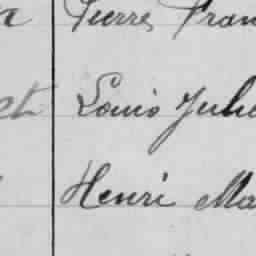 Pierre Fran
et Louis Julie
Henri Ma